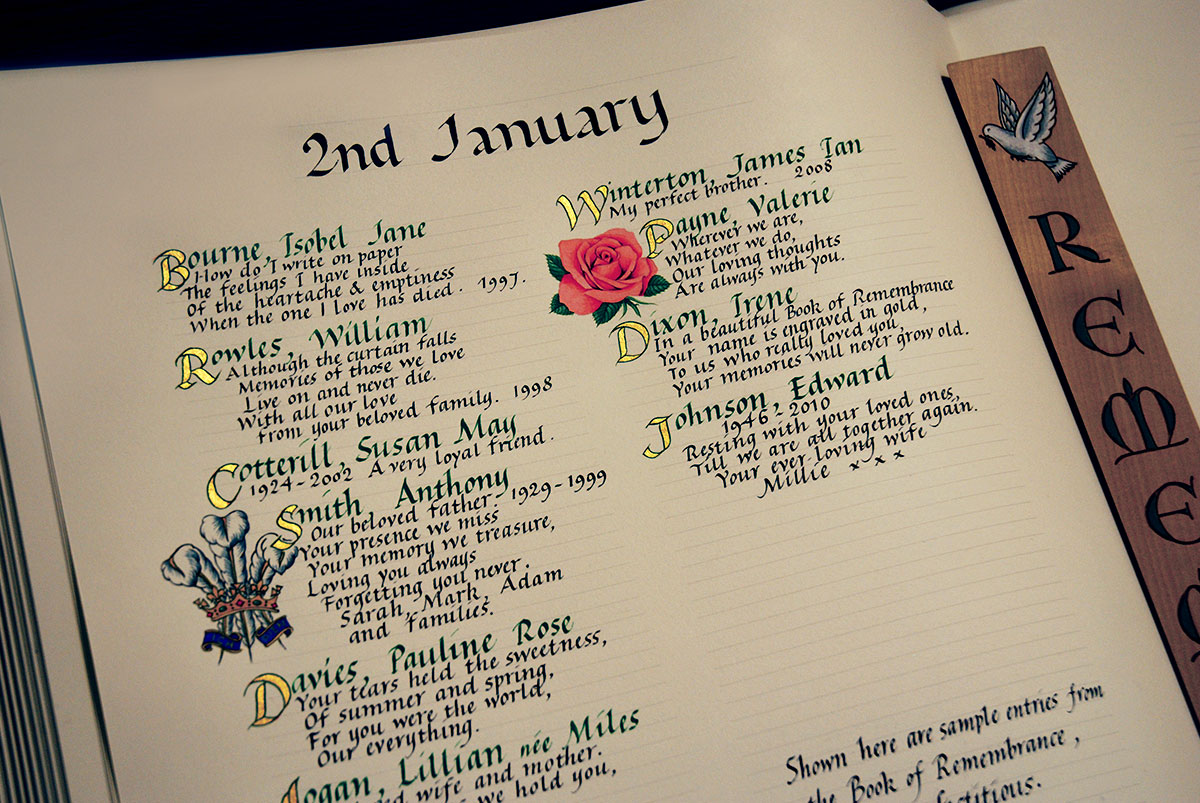 2nd January
Bourne, Isobel Jane
How do I write on paper
The feelings I have inside
Of the heartache & emptiness
When the one I love has died. 1997.
Rowles, William
Although the curtain falls
Memories of those we love
Live on and never die.
With all our love
from your beloved family. 1998
Cotterill, Susan May
1924-2002 A very loyal friend.
Smith, Anthony
Our beloved father. 1929-1999
Your presence we miss
Your memory we treasure,
Loving you always
Forgetting you never.
Sarah, Mark, Adam
and families.
Davies, Pauline Rose
Your tears held the sweetness,
Of summer and spring,
For you were the world,
Our everything.
Logan, Lillian née Miles
wife and mother.
we hold you,
Winterton, James Ian
My perfect brother. 2008
Payne, Valerie
Wherever we are,
Whatever we do,
Our loving thoughts
Are always with you.
Dixon, Irene
In a beautiful Book of Remembrance
Your name is engraved in gold,
To us who really loved you,
Your memories will never grow old.
Johnson, Edward
1946-2010
Resting with your loved ones,
Till we are all together again.
Your ever loving wife
Millie x x x
Shown here are sample entries from
the Book of Remembrance,
REMEM